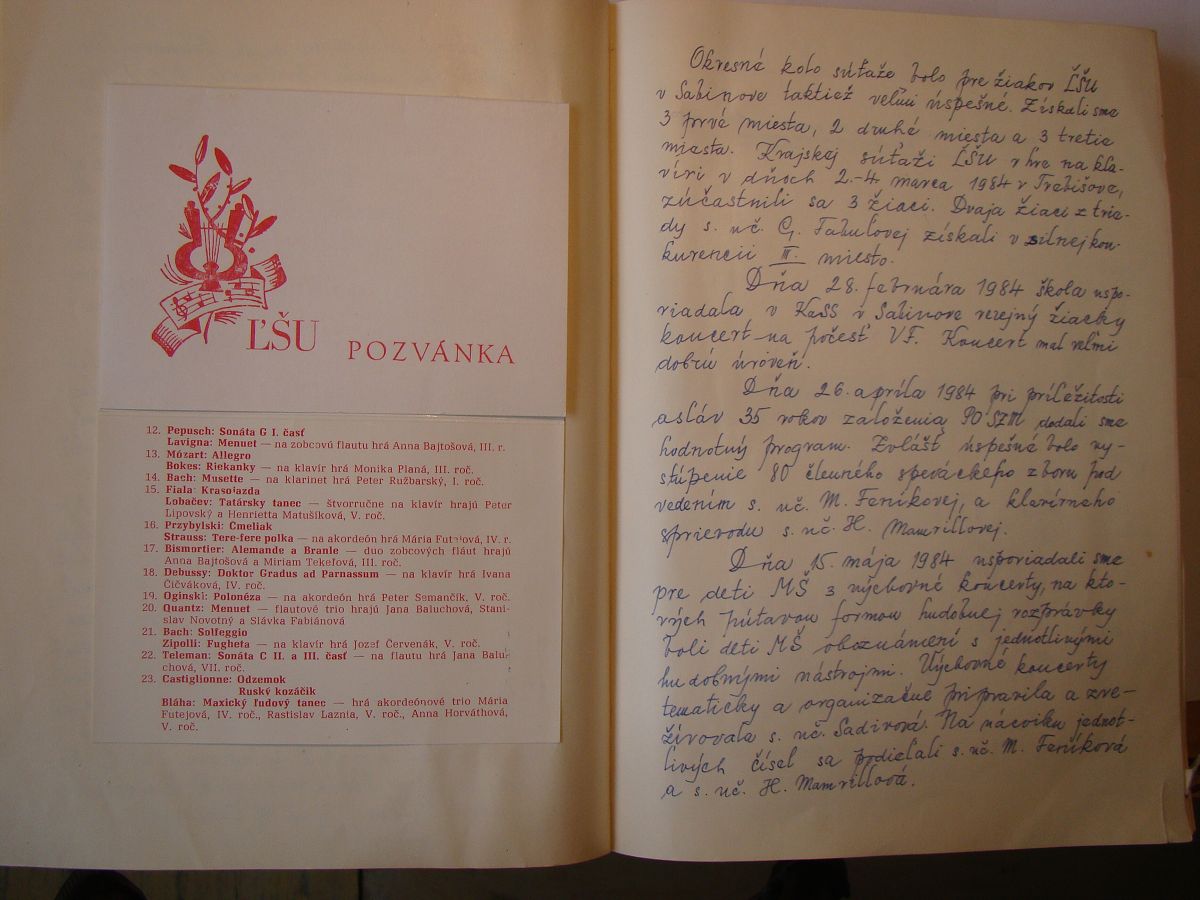 ĽŠU POZVÁNKA
12. Pepusch: Sonáta G I. časť
Lavigna: Menuet — na zobcovú flautu hrá Anna Bajtošová, III. r.
13. Mózart: Allegro
Bokes: Riekanky — na klavír hrá Monika Planá, III. roč.
14. Bach: Musette — na klarinet hrá Peter Ružbarský, I. roč.
15. Fiala: Krasojazda
Lobačev: Tatársky tanec — štvorručne na klavír hrajú Peter
Lipovský a Henrietta Matušíková, V. roč.
16. Przybylski: Čmeliak
Strauss: Tere-fere polka — na akordeón hrá Mária Futejová, IV. r.
17. Bismortier: Alemande a Branle — duo zobcových fláut hrajú
Anna Bajtošová a Miriam Tekeľová, III. roč.
18. Debussy: Doktor Gradus ad Parnassum — na klavír hrá Ivana
Čičváková, IV. roč.
19. Oginski: Polonéza — na akordeón hrá Peter Semančík, V. roč.
20. Quantz: Menuet — flautové trio hrajú Jana Baluchová, Stani-
slav Novotný a Slávka Fabiánová
21. Bach: Solfeggio
Zipolli: Fugheta — na klavír hrá Jozef Červenák, V. roč.
22. Teleman: Sonáta C II. a III. časť — na flautu hrá Jana Balu-
chová, VII. roč.
23. Castiglionne: Odzemok
Ruský kozáčik
Bláha: Maxický ľudový tanec — hrá akordeónové trio Mária
Futejová, IV. roč., Rastislav Laznia, V. roč., Anna Horváthová,
V. roč.
Okresné kolo súťaže bolo pre žiakov ĽŠU
v Sabinove taktiež veľmi úspešné. Získali sme
3 prvé miesta, 2 druhé miesta a 3 tretie
miesta. Krajskej súťaži ĽŠU v hre na kla-
víri v dňoch 2.-4. marca 1984 v Trebišove,
zúčastnili sa 3 žiaci. Dvaja žiaci z trie-
dy s. uč. G. Fabuľovej získali v silnej kon-
kurencii II. miesto.
Dňa 28. februára 1984 škola uspo-
riadala v KaSS v Sabinove verejný žiacky
koncert na počesť VF. Koncert mal veľmi
dobrú úroveň.
Dňa 26. apríla 1984 pri príležitosti
osláv 35 rokov založenia PO SZM dodali sme
hodnotný program. Zvlášť úspešné bolo vy-
stúpenie 80 členného speváckeho zboru pod
vedením s. uč. M. Feníkovej, a klavírneho
sprievodu s. uč. H. Mamrillovej.
Dňa 15. mája 1984 usporiadali sme
pre deti MŠ 3 výchovné koncerty, na kto-
rých pútavou formou hudobnej rozprávky
boli deti MŠ oboznámení s jednotlivými
hudobnými nástrojmi. Výchovné koncerty
tematičky a organizačne pripravila a zve-
žívovala s. uč. Sadivová. Na nácviku jednot-
livých čísel sa podieľali s. uč. M. Feníková
a s. uč. H. Mamrillová.